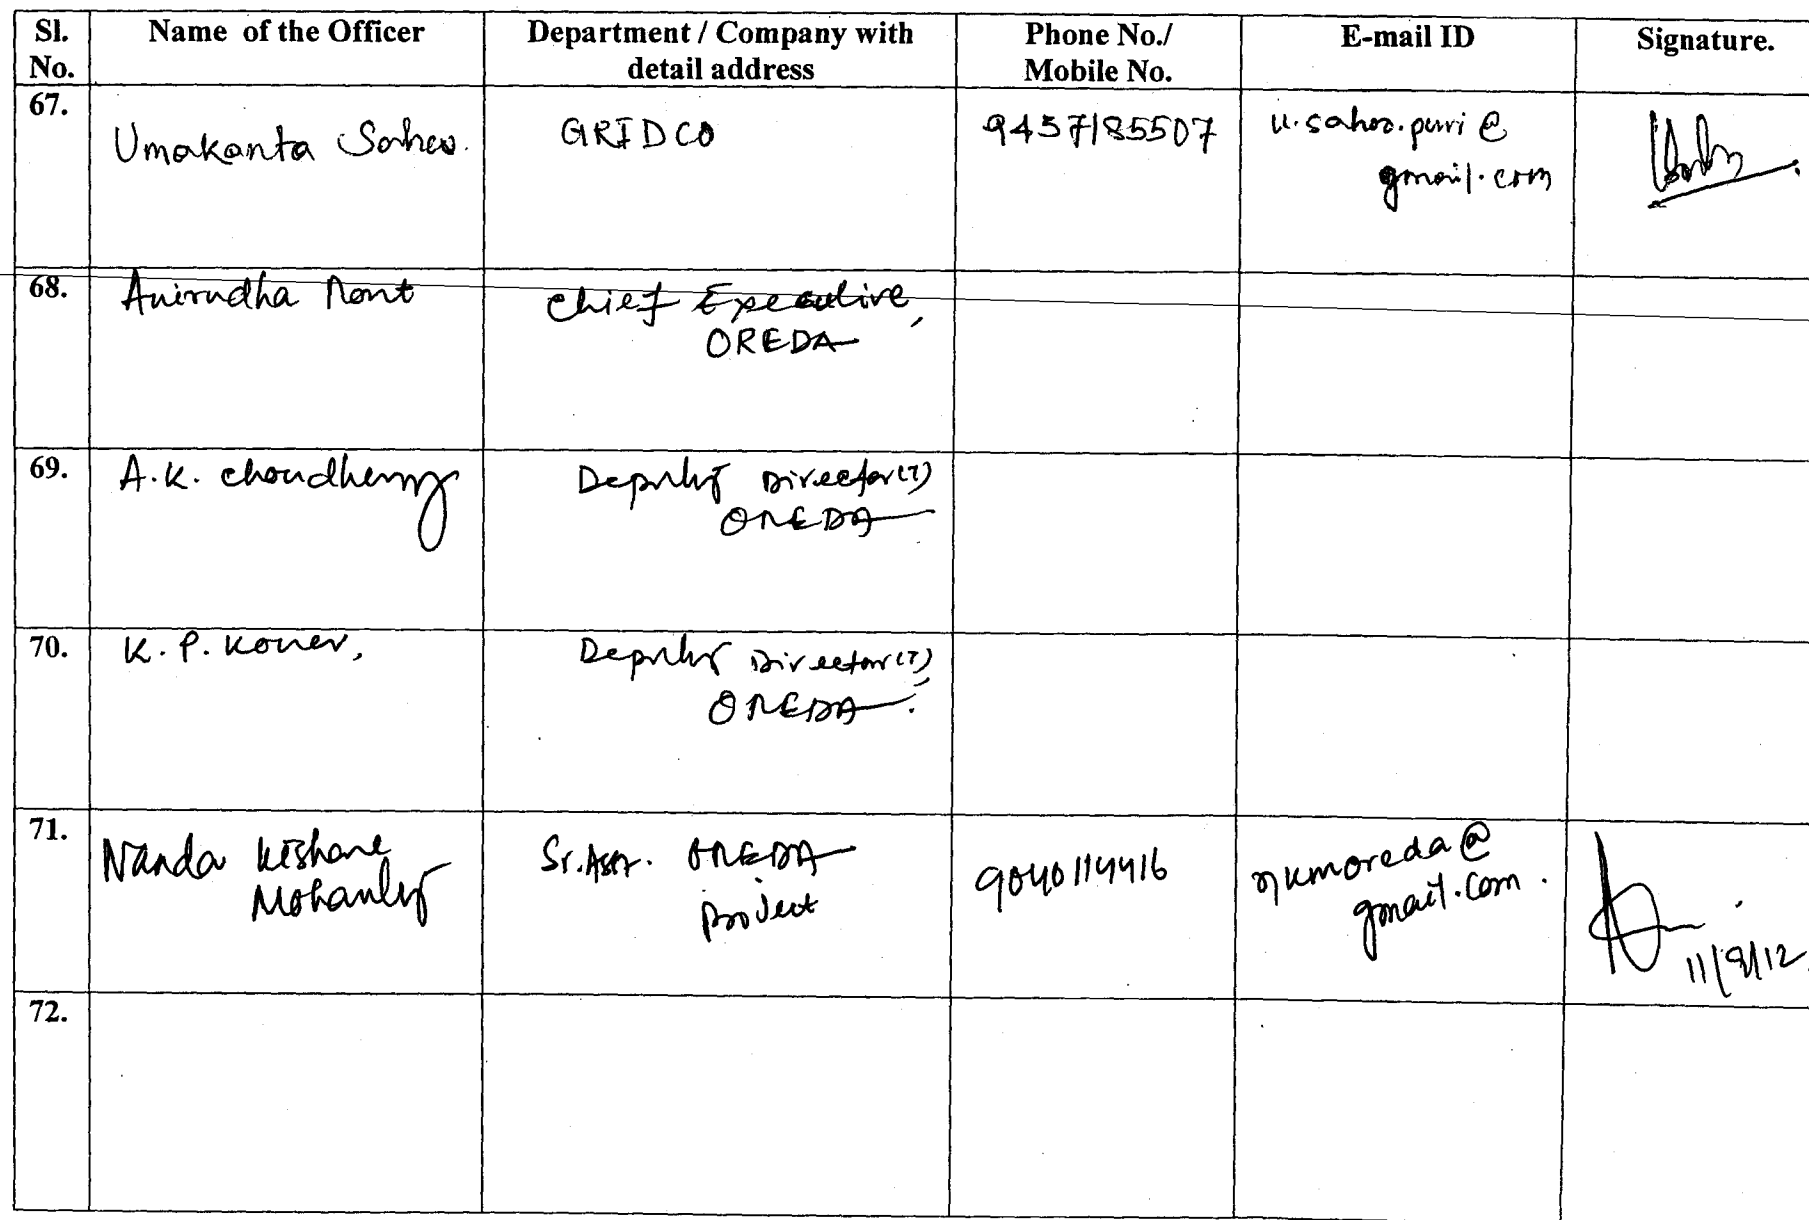 Sl. No. Name of the Officer Department / Company with detail address Phone No./ Mobile No. E-mail ID Signature.
67. Umakanta Sahoo. GRIDCO 9437185507 u.sahoo.puri@
gmail.com
68. Anirudha Rout Chief Executive,
OREDA
69. A.K. Choudhury Deputy Director(T)
OREDA
70. K.P. Koner, Deputy Director(T),
OREDA.
71. Nanda Kishore Sr.Asst. OREDA 9040114416 nkmoreda@
Mohanty Project gmail.com.
11/9/12.
72.